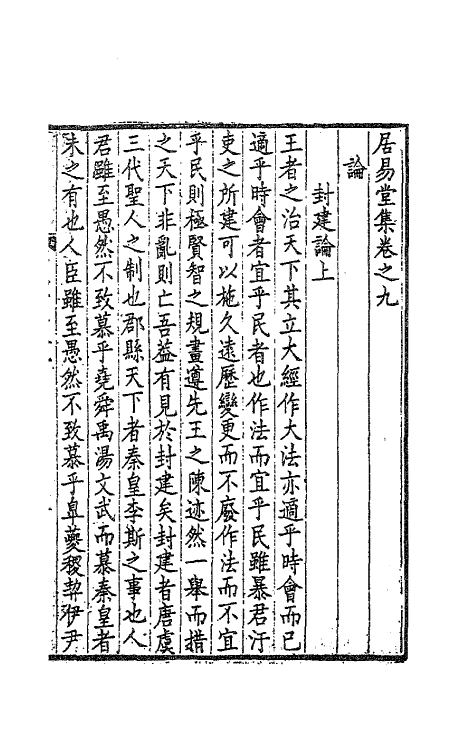 居易堂集卷之九
論
封建論上
王者之治天下其立大經作大法亦適乎時會而已
適乎時會者宜乎民者也作法而宜乎民雖暴君汙
吏之所建可以施久遠歷變更而不廢作法而不宜
乎民則極賢智之規畫遵先王之陳迹然一舉而措
之天下非亂則亡吾益有見於封建矣封建者唐虞
三代聖人之制也郡縣天下者秦皇李斯之事也人
君雖至愚然不致慕乎堯舜禹湯文武而慕秦皇者
未之有也人臣雖至愚然不致慕乎皐夔稷契伊尹